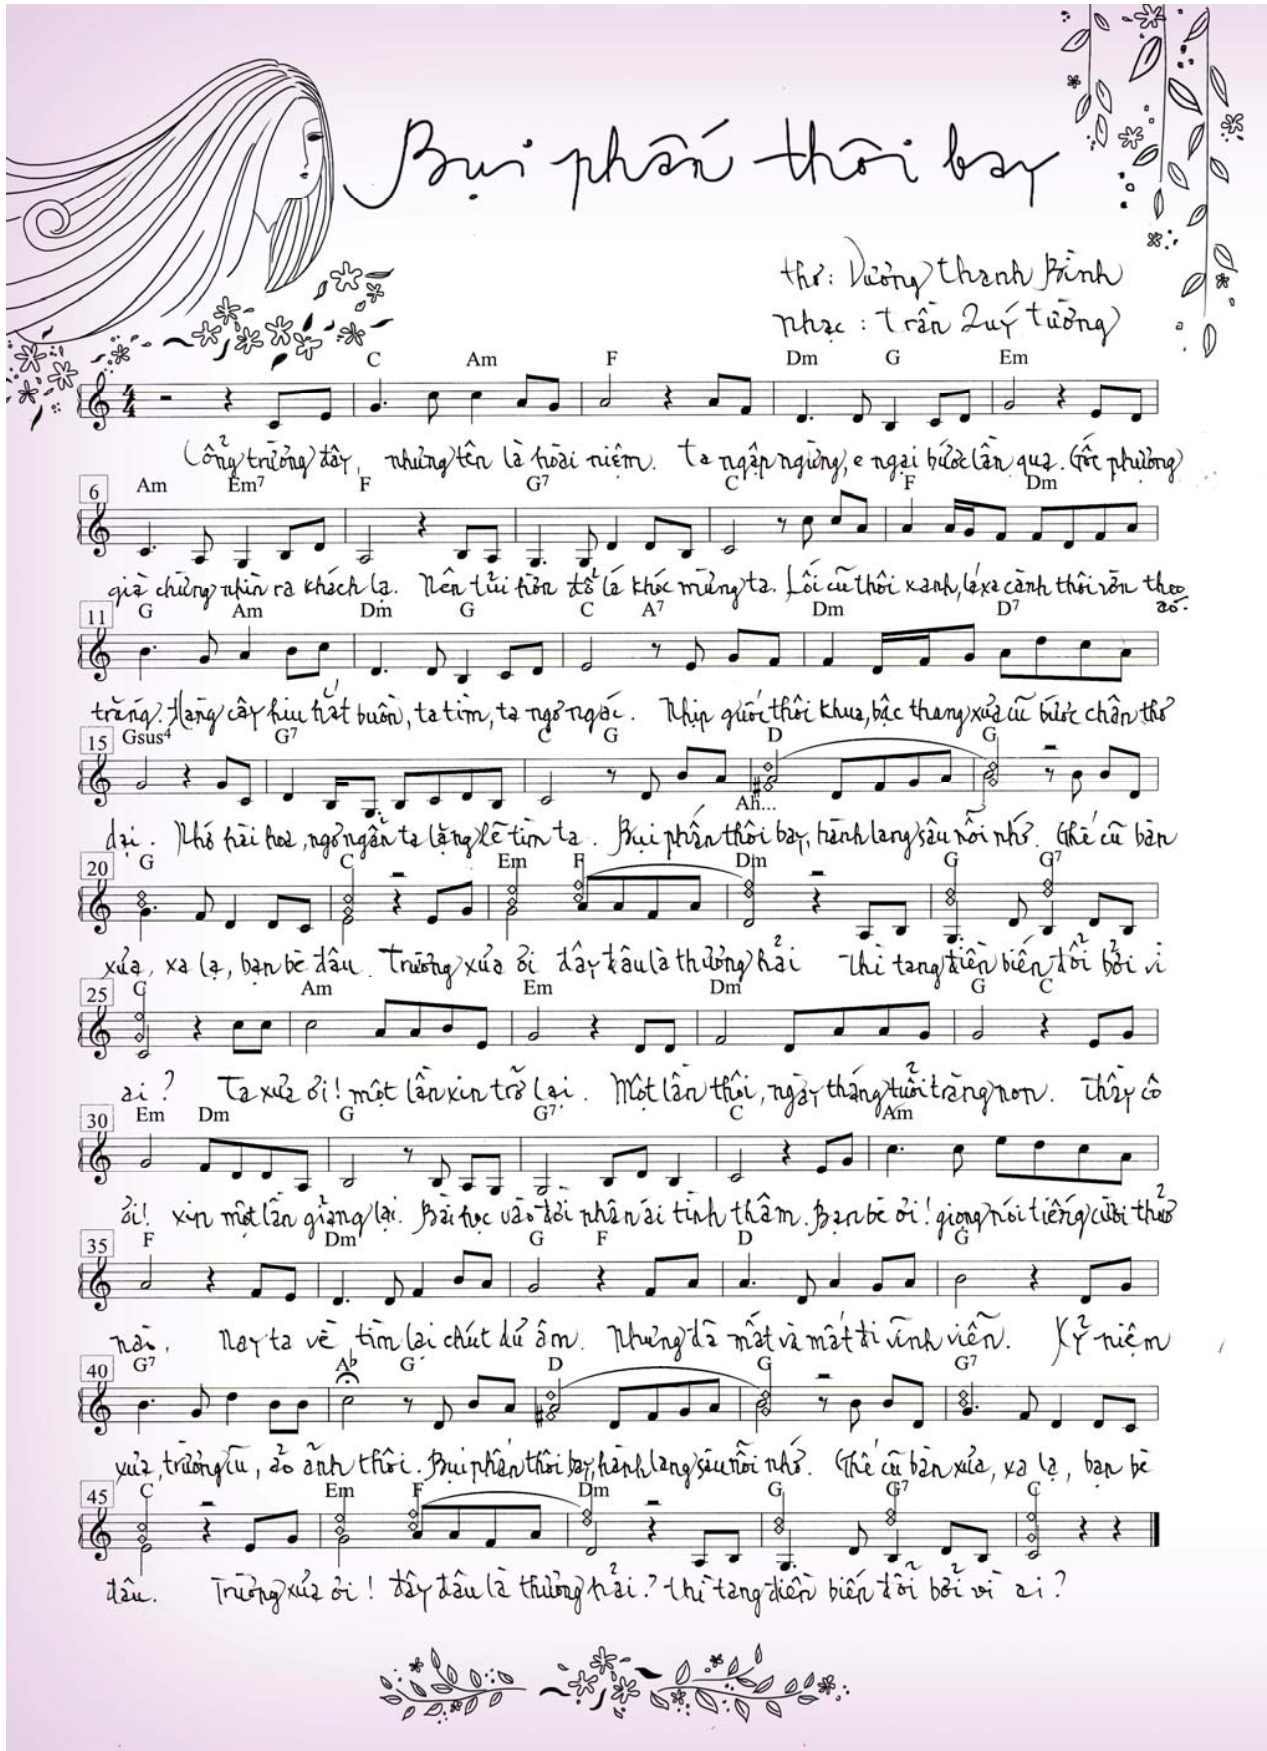 Bụi phấn thôi bay
thơ: Dương thanh Bình
nhạc : trần Quý tường
C Am F Dm G Em
Cổng trường đây, nhưng tên là hoài niệm. Ta ngập ngừng, e ngại bước lần qua. Gốc phượng
6 Am Em7 F G7 C F Dm
già chừng nhìn ra khách lạ. Nên tủi hờn đổ lá khóc mừng ta. Lối cũ thôi xanh, lá xa cành thôi vờn theo áo.
11 G Am Dm G C A7 Dm D7
trắng. Hàng cây hiu hắt buồn, ta tìm, ta ngơ ngác. Nhịp guốc thôi khua, bậc thang xưa cũ bước chân thơ
15 Gsus4 G7 C G D G
Ah...
dại. Nhớ hài hoa, ngơ ngẩn ta lặng lẽ tìm ta. Bụi phấn thôi bay, hành lang sâu nỗi nhớ. Ghế cũ bàn
20 G C Em F Dm G G7
xưa, xa lạ, bạn bè đâu. Trường xưa ơi đây đâu là thương hải thì tang điền biến đổi bởi vì
25 C Am Em Dm G C
ai? Ta xưa ơi! một lần xin trở lại. Một lần thôi, ngày tháng tuổi trăng non. Thầy cô
30 Em Dm G G7 C Am
ơi! xin một lần giảng lại. Bài học vào đời nhân ái tình thâm. Bạn bè ơi! giọng nói tiếng cười thuở
35 F Dm G F D G
nào, Nay ta về tìm lại chút dư âm. Nhưng đã mất và mất đi vĩnh viễn. Kỷ niệm
40 G7 A♭ G D G G7
xưa, trường cũ, ảo ảnh thôi. Bụi phấn thôi bay, hành lang sâu nỗi nhớ. Ghế cũ bàn xưa, xa lạ, bạn bè
45 C Em F Dm G G7 C
đâu. Trường xưa ơi! đây đâu là thương hải? thì tang điền biến đổi bởi vì ai?